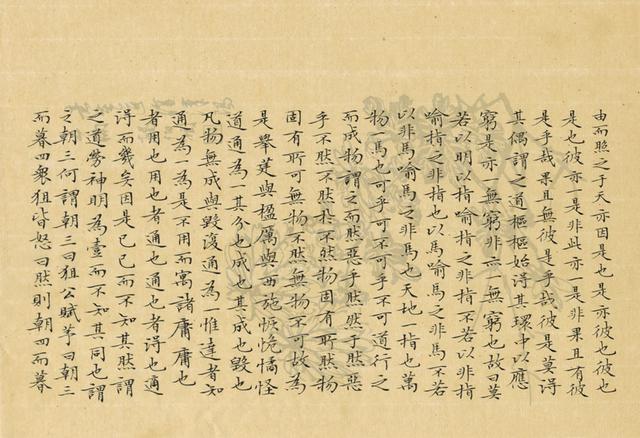 由而照之于天亦因是也是亦彼也彼也
是也彼亦一是非此亦一是非果且有彼
是乎哉果且無彼是乎哉彼是莫得
其偶謂之道樞樞始得其環中以應
窮是亦一無窮非亦一無窮也故曰莫
若以明以指喻指之非指不若以非指
喻指之非指也以馬喻馬之非馬不若
以非馬喻馬之非馬也天地一指也萬
物一馬也可乎可不可乎不可道行之
而成物謂之而然惡乎然然于然惡
乎不然不然於不然物固有所然物
固有所可無物不然無物不可故為
是舉莛與楹厲與西施恢恑憰怪
道通為一其分也成也其成也毀也
凡物無成與毀復通為一惟達者知
通為一為是不用而寓諸庸庸也
者用也用也者通也通也者得也適
得而幾矣因是已已而不知其然謂
之道勞神明為壹而不知其同也謂
之朝三何謂朝三曰狙公賦芧曰朝三
而暮四衆狙皆怒曰然則朝四而暮